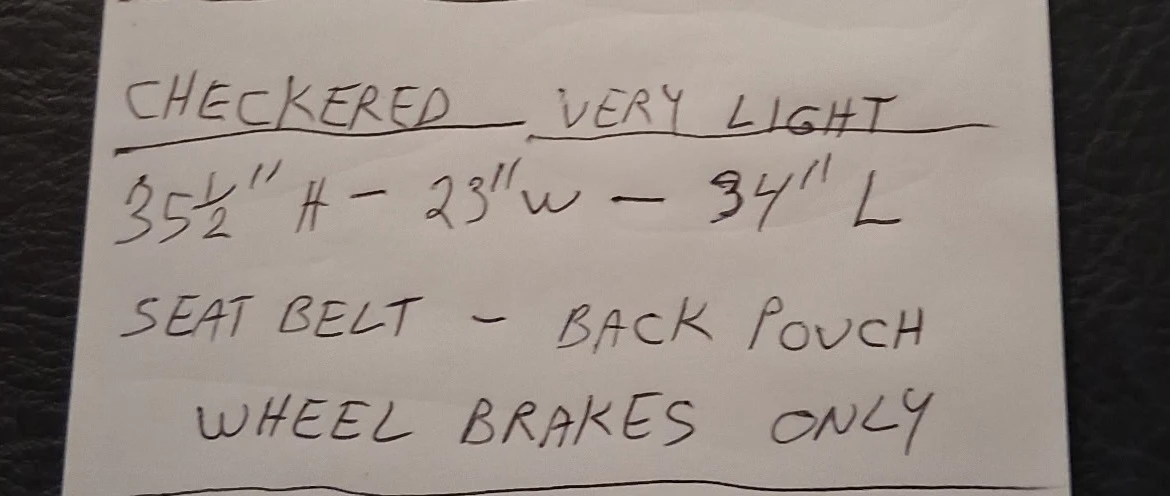 CHECKERED VERY LIGHT
35½" H - 23" W - 34" L
SEAT BELT - BACK POUCH
WHEEL BRAKES ONLY